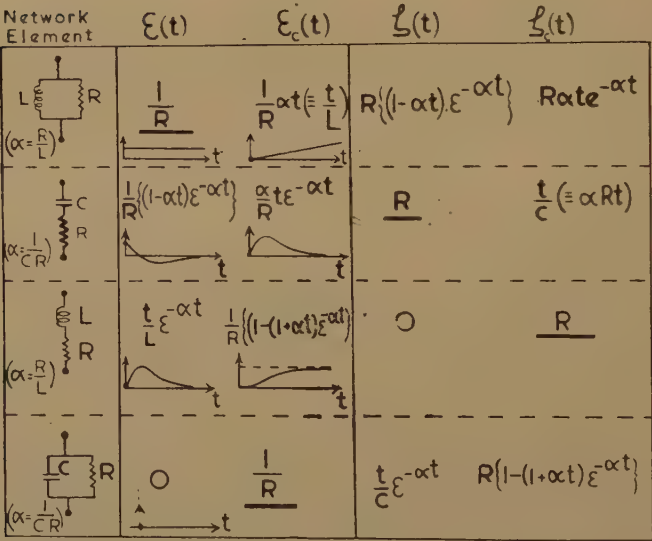 Network Element ℰ(t) ℰc(t) ζ(t) ζc(t)
L R (α=R/L) 1/R t 1/R αt(≡ t/L) t R{(1-αt).ε^-αt} Rαte^-αt
C R (α=1/CR) 1/R{(1-αt)ε^-αt} t α/R tε^-αt t R t/C (≡ αRt)
L R (α=R/L) t/L ε^-αt t 1/R{(1-(1+αt)ε^-αt} t O R
C R (α=1/CR) O t 1/R t/C ε^-αt R{1-(1+αt)ε^-αt}